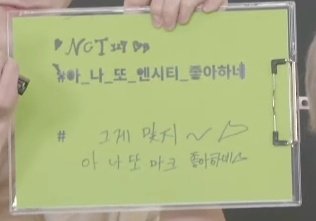 ♥NCT 127♥♥
#아_나_또_엔시티_좋아하네
# 그게 맞지~♡
아 나 또 마크 좋아하네